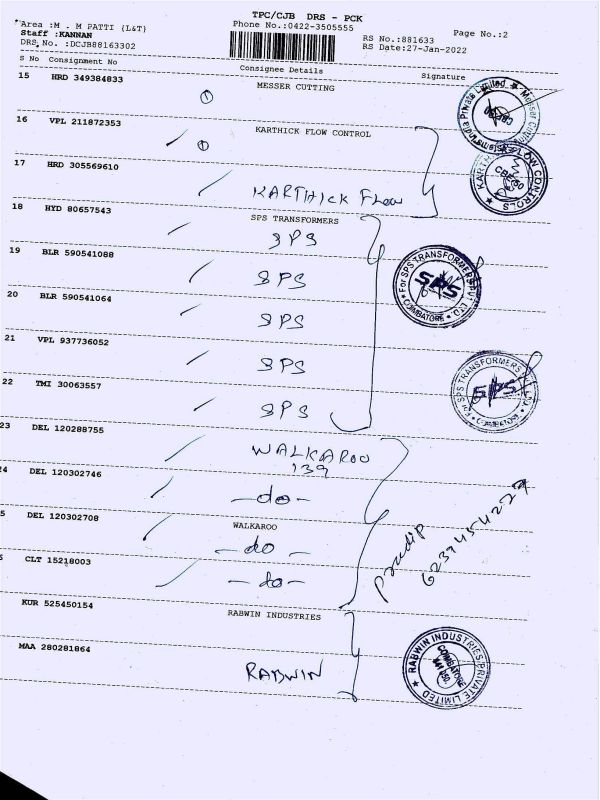 TPC/CJB DRS - PCK
Area :M . M PATTI {L&T}
Phone No.:0422-3505555
Page No.:2
Staff : KANNAN
RS No.:881633
DRS, No. :DCJB88163302
RS Date:27-Jan-2022
S No Consignment No Consignee Details Signature
15 HRD 349384833 MESSER CUTTING
1
16 VPL 211872353 KARTHICK FLOW CONTROL
1
17 HRD 305569610
KARTHICK Flow
18 HYD 80657543 SPS TRANSFORMERS
SPS
19 BLR 590541088
SPS
20 BLR 590541064
SPS
21 VPL 937736052
SPS
22 TMI 30063557
SPS
23 DEL 120288755
WALKAROO
139
24 DEL 120302746
-do-
5 DEL 120302708 WALKAROO
-do
CLT 15218003
-do-
Pradip
KUR 525450154 RABWIN INDUSTRIES
MAA 280281864
RABWIN
For SPS TRANSFORMERS PVT LTD.
SPS
COIMBATORE
SPS TRANSFORMERS
SPS
COIMBATORE
RABWIN INDUSTRIES PRIVATE LIMITED
COIMBATORE